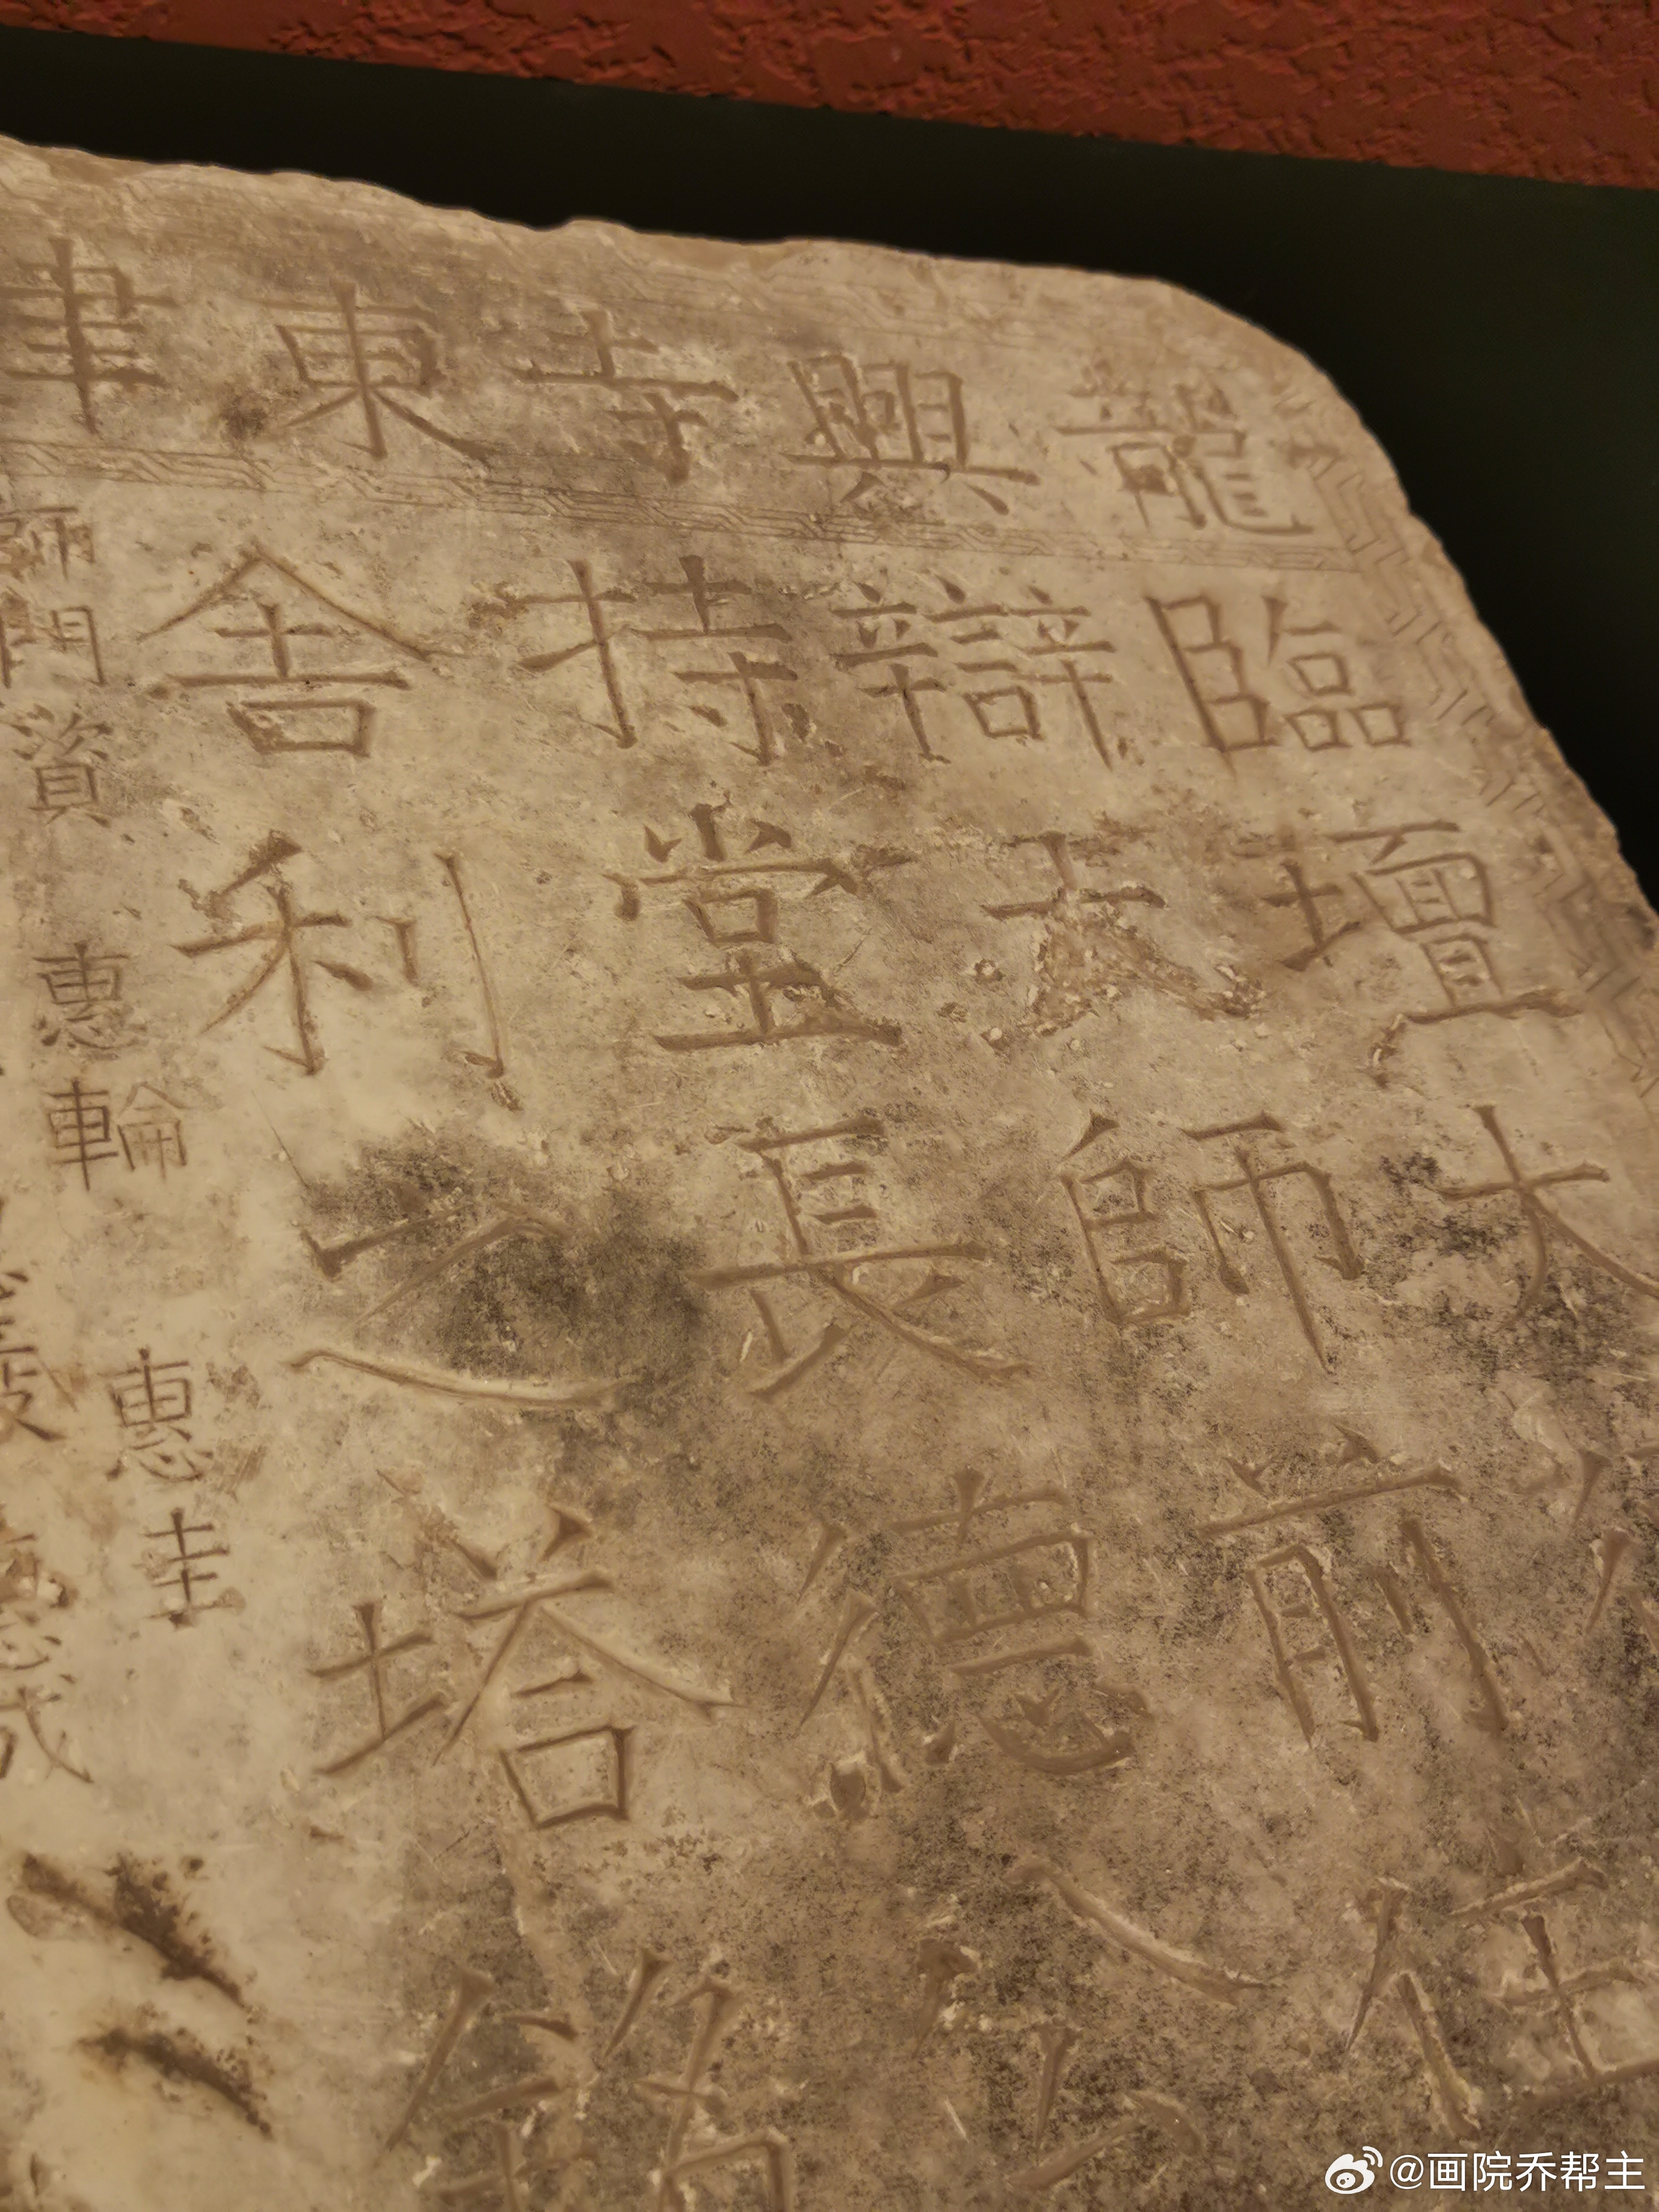 龍興寺東
臨壇大
辯天師前
持堂長德
舍利之塔
師門資 惠輪 惠圭
@画院乔帮主